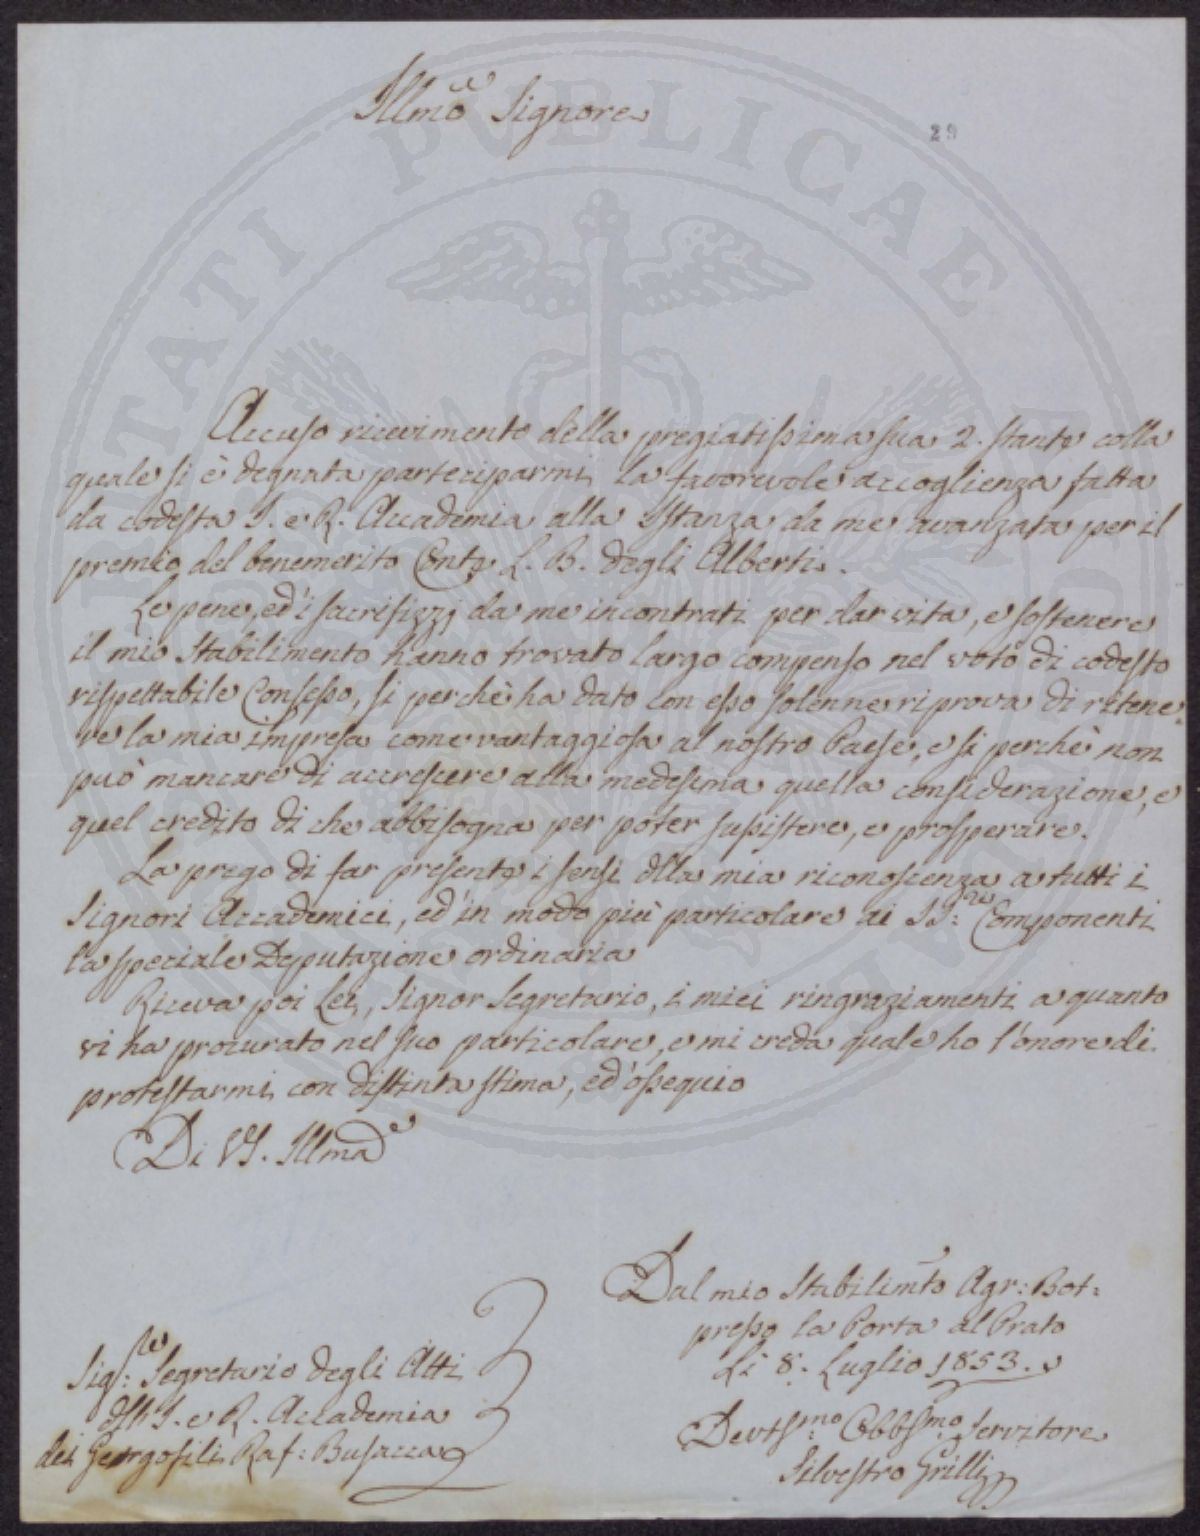 Illmo Signore
29
Accuso ricevimento della pregiatissima sua 2. stante colla
quale si è degnata parteciparmi la favorevole accoglienza fatta
da codesta I. e R. Accademia alla Istanza da me avanzata per il
premio del benemerito Conte L. B. degli Alberti.
Le pene, ed'i sacrifizzj da me incontrati per dar vita, e sostenere
il mio Stabilimento hanno trovato largo compenso nel voto di codesto
rispettabile Consesso, si perchè ha dato con esso solenne riprova di ritene-
re la mia impresa come vantaggiosa al nostro Paese, e si perchè non
può mancare di accrescere alla medesima quella considerazione, e
quel credito di che abbisogna per poter susistere, e prosperare.
La prego di far presente i sensi dlla mia riconoscenza a tutti i
Signori Accademici, ed'in modo più particolare ai SS:ri Componenti
la speciale Deputazione ordinaria
Riceva poi Lei, Signor Segretario, i miei ringraziamenti a quanto
vi ha procurato nel suo particolare, e mi creda quale ho l'onore di
protestarmi con distinta stima, ed'ossequio
Di VS. Illma
Dal mio Stabilimto Agr: Bot:
presso la Porta al Prato
Li 8. Luglio 1853.
Sigre: Segretario degli Atti
dlla I. e R. Accademia
dei Georgofili Raf: Busacca
Devtsmo: Obblsmo Servitore
Silvestro Grilli
VERITATI PUBLICAE